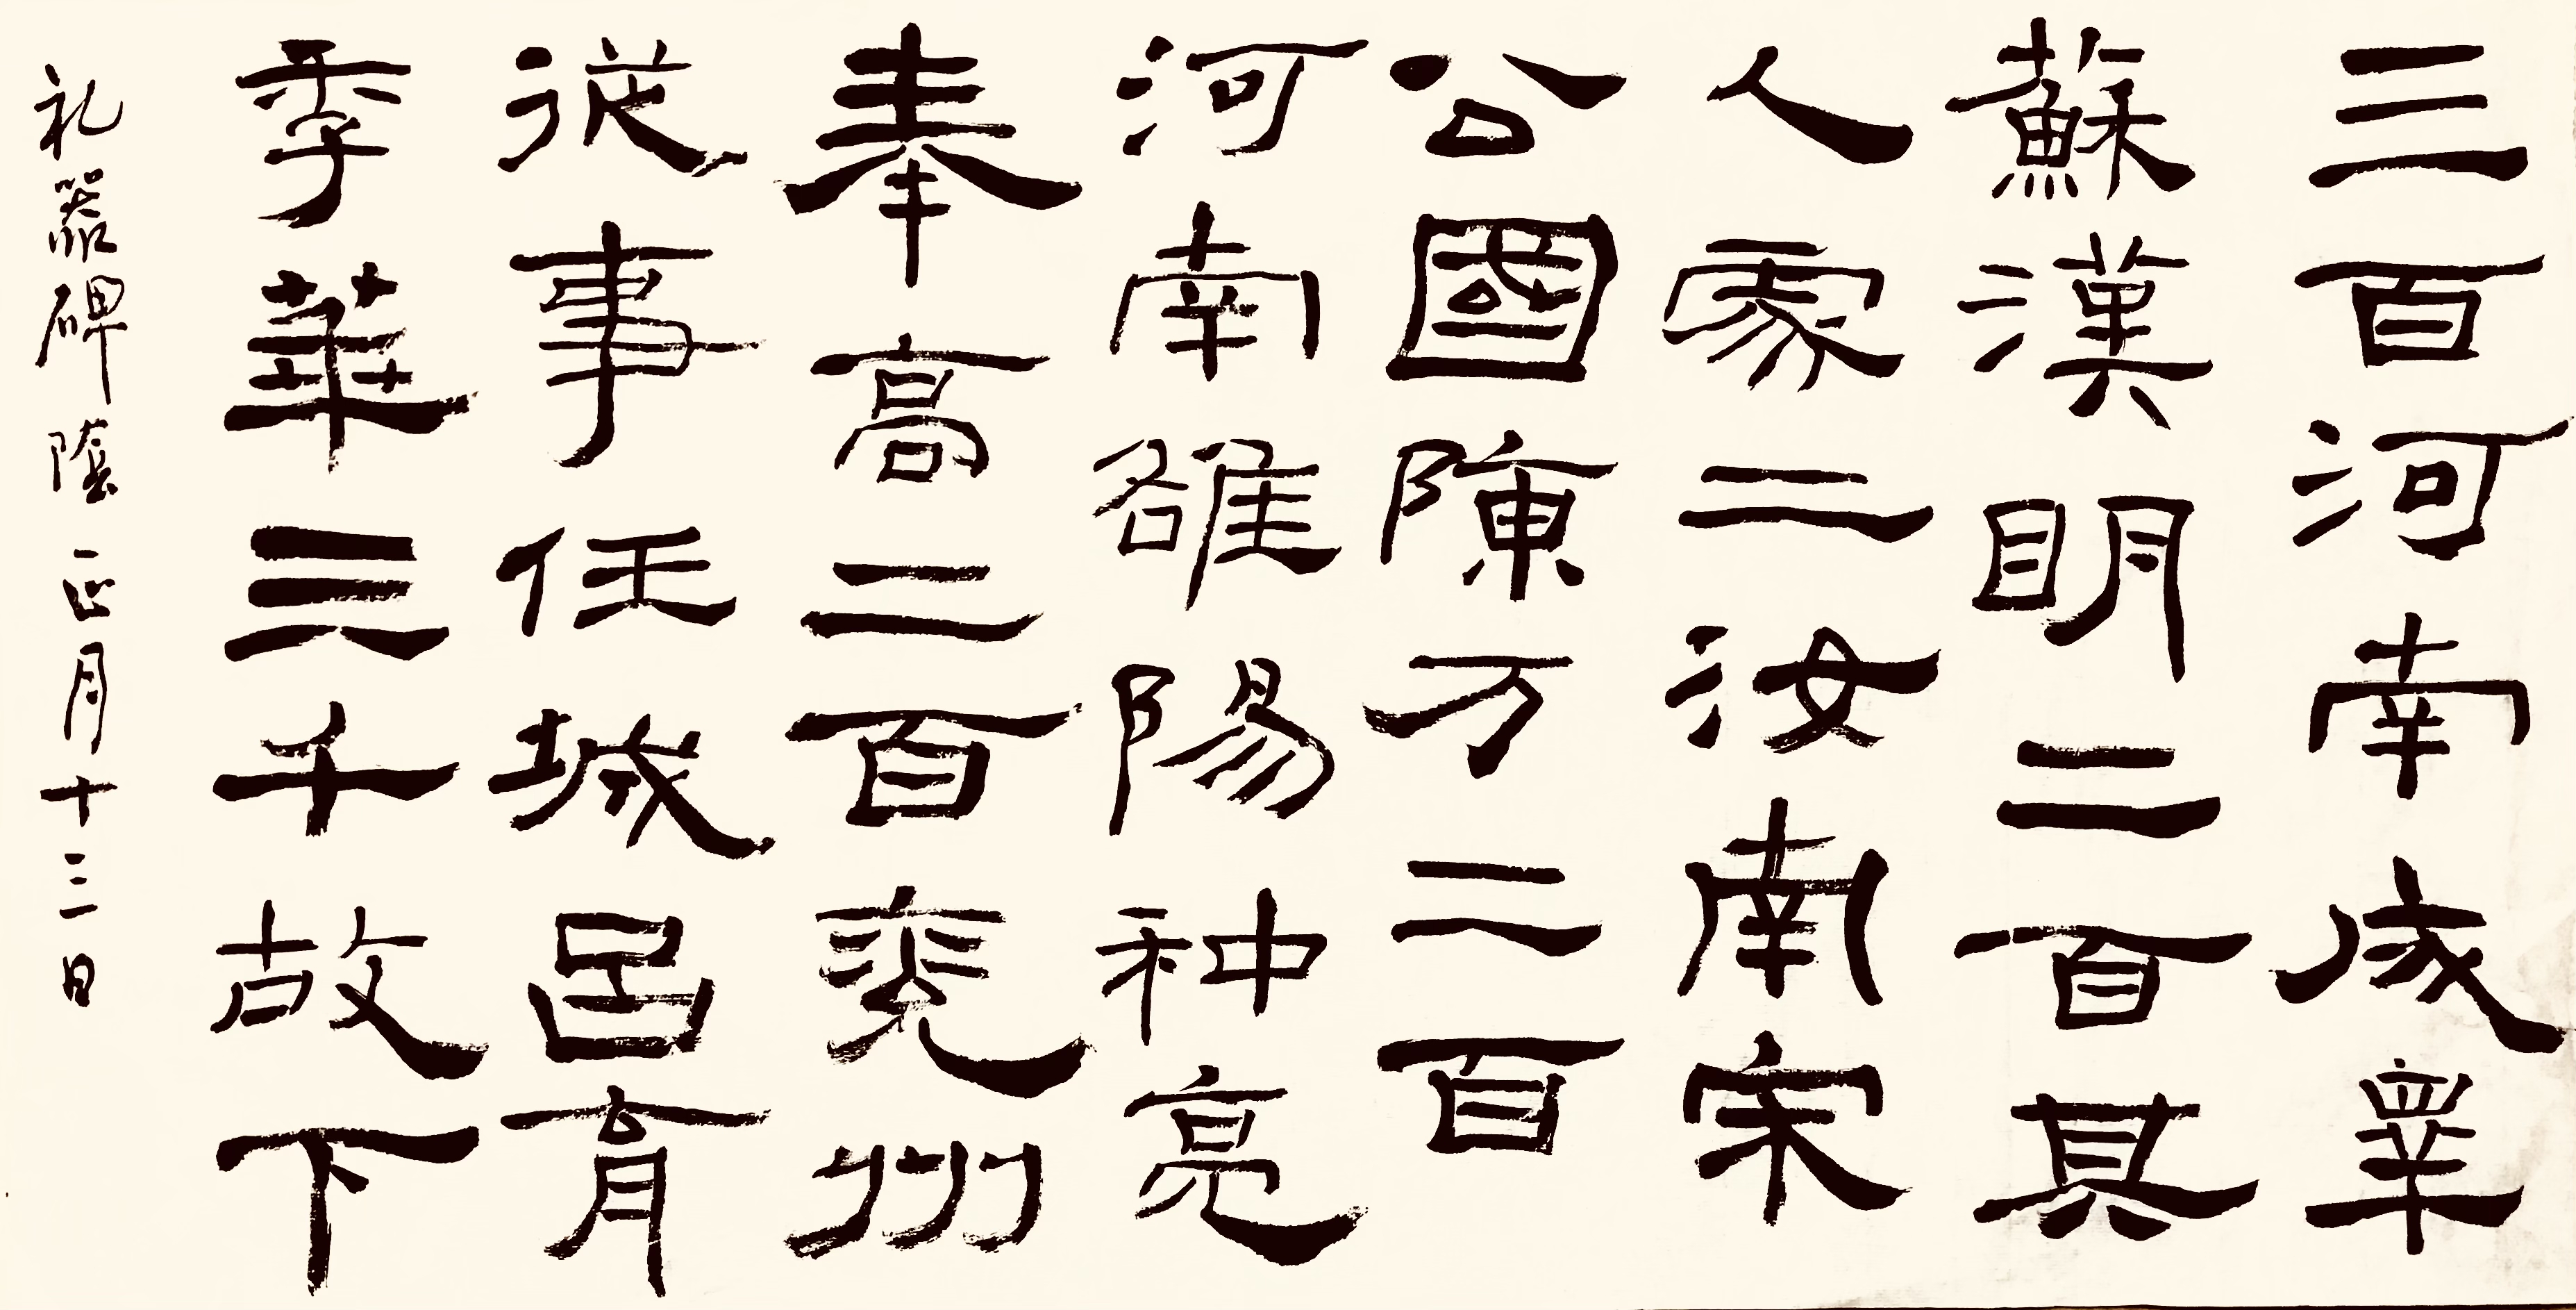 三百河南成睾
蘇漢明二百其
人處二汝南宋
公國陳万二百
河南雒陽种亮
奉高二百兗州
從事任城呂育
季華三千故下
礼器碑陰 正月十三日